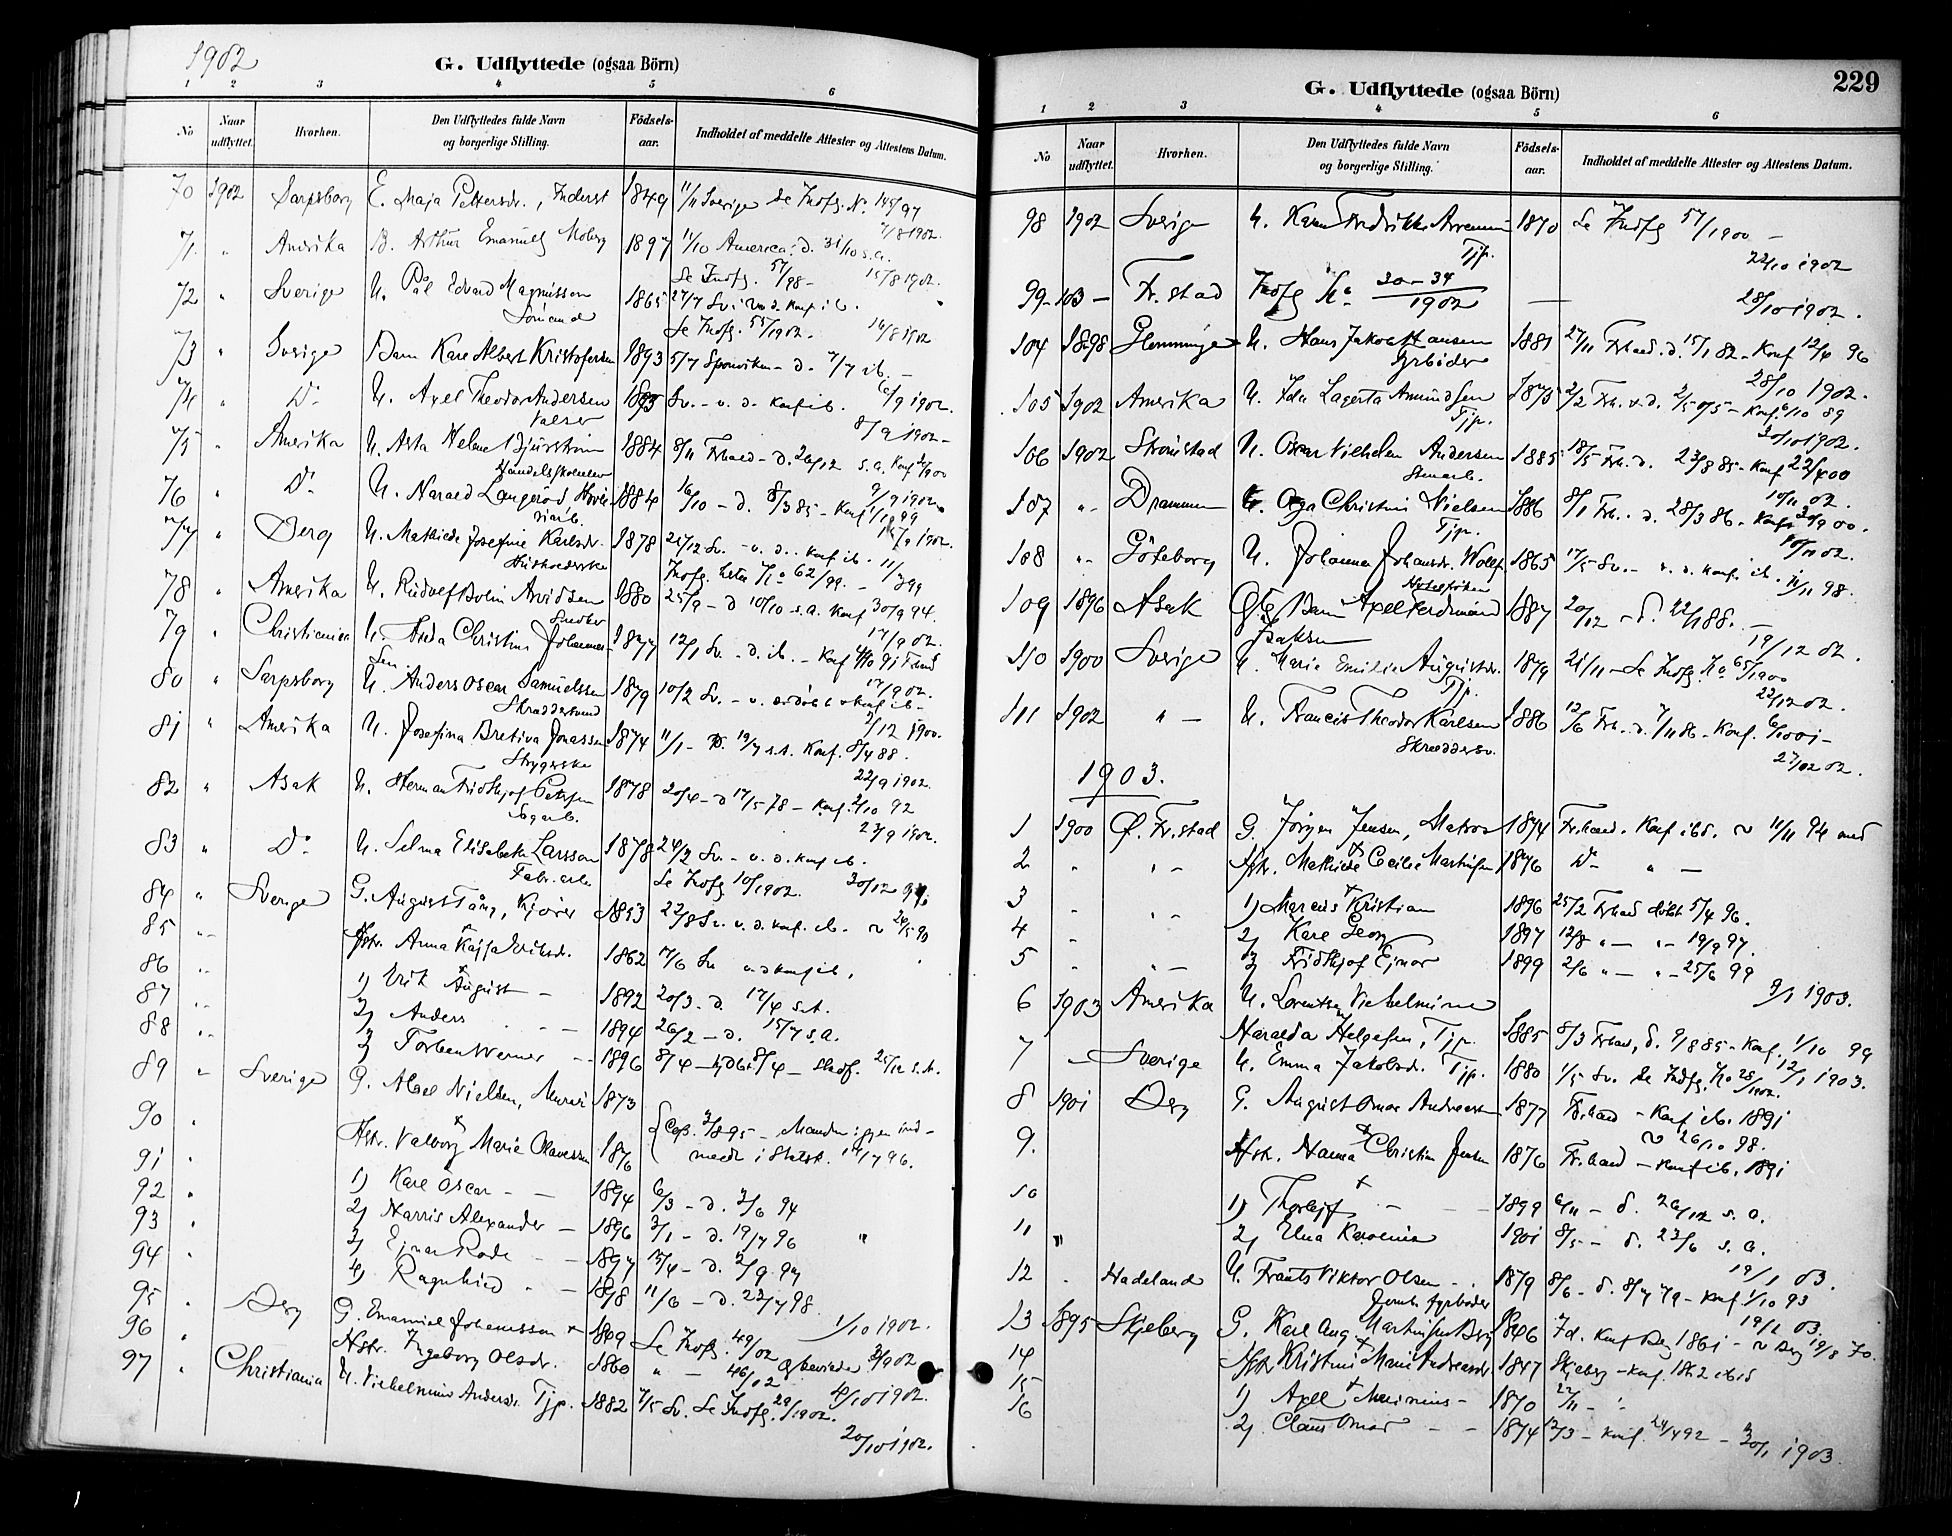 1902
G. Udflyttede (ogsaa Börn)
1 2 3 4 5 6
No Naar udflyttet. Hvorhen. Den Udflyttedes fulde Navn og borgerlige Stilling. Födsels-aar. Indholdet af meddelte Attester og Attestens Datum.
70 1902 Sarpsborg E. Maja Pettersdr., Inderst 1849 11/11 Sverige Se Indfg. No 145/97
7/8 1902.
71 " Amerika B. Arthur Emanuel Moberg 1897 11/10 America: d. 31/10 s.a.
Se Indfg. 57/98 - 15/8 1902.
72 " Sverige U. Pål Edvard Magnusson 1865 27/7 Sv. i v. d. Konf ib.
Sömand Se Indfg. 55/1902. 16/8 1902
73 " Sverige Barn Kare Albert Kristofersen 1893 5/7 Sponviken - d. 7/7 ib. -
6/9 1902.
74 " Do U. Axel Theodor Andersen 1893 Sv. - v. d. Konf ib.
Valser 8/9 1902 -
75 " Amerika U. Asta Helene Bjurström 1884 8/11 Frhald - d. 26/12 s.a. Konf 1900
9/9 1902
76 " Do U. Harald Langeröd 1884 16/10 - d. 8/3 85 - Konf 1/10 99
77 " Berg U. Mathilde Josefine Karlsdr. 1878 21/12 Sv. - v. d. konf ib.
Husholderske Indfg. listen No 62/99. -
78 " Amerika U. Rudolf Bolin Arvidsen 1880 25/9 - d 10/10 s.a. Konf 30/9 94.
Snedker 17/9 02.
79 " Christiania U. Hilda Christine Johannes- 1877 12/1 Sv. - d. ib. - Konf
sen 17/9 02.
80 " Sarpsborg U. Anders Oscar Samuelssen 1879 10/2 Sv. - v. er döbt o konf ib -
Skræddersvend 3/12 1900.
81 " Amerika U. Josefina Bretiva Jonassen 1874 11/1 - D. 19/7 s.a. Konf. 8/4 88.
Strygerske 22/9 1902.
82 " Asak U. Herman Fridthjof Petersen 1878 20/4 - d 17/5 78 - Konf. 2/10 92
Sagarb. 27/9 1902.
83 " Do U. Selma Elisabeth Larsson 1878 24/2 Sv. - v. d. konf ib.
Fabr. arb. Se Indfg 10/1902.
84 " Sverige G. August Tång, Kjörer 1853 22/8 Sv. v. d. konf. ib.
85 " Hstr. Anna Kajsa Eriksdr. 1862 17/6 Sv v. d konf ib.
86 " 1) Erik August - 1892 20/3. d. 17/4 s.a.
87 " 2) Anders - 1894 26/2 - d. 15/7 s.a.
88 " 3) Torben Werner - 1896 8/4 - hjdbt 8/4 - Stadf. 25/12 s.a.
89 " Sverige G. Abel Nielsen, Murer 1873
90 " Hstr. Valborg Marie Olavessen 1876 Cop. 3/8 95 - Manden igjen ind-
meldt i Statsk. 14/7 96.
91 " 1) Kare Oscar - - 1894 6/3 - d. 3/6 94
92 " 2) Harris Alexander - 1896 3/1 - d. 19/7 96
93 " 3) Ejnar Rode - 1897 13/4 - d. 2/9 97
94 " 4) Ragnhild - - 1898 11/6 - d. 23/7 98.
1/10 1902.
95 " Berg G. Emanuel Johannsson 1869 Se Indfg. 49/02
96 " Hstr. Ingeborg Olsdr. 1860 " - 46/02
4/10 1902.
97 " Christiania U. Vilhelmine Andersdr. Tjp. 1882 7/5 Sv. Se Indfg. 29/1902.
20/10 1902.
229
G. Udflyttede (ogsaa Börn)
1 2 3 4 5 6
No Naar udflyttet. Hvorhen. Den Udflyttedes fulde Navn og borgerlige Stilling. Födsels-aar. Indholdet af meddelte Attester og Attestens Datum.
98 1902 Sverige U. Karen Fredrikke 1870 Se Indfg 57/1900 -
Tjp. 22/10 1902
99-103 - Fr.stad Indfg No 30-34/1902 -
28/10 1902.
104 1898 Glemminge U. Hans Jakob Hansen 1881 27/11 Frhald. d. 15/1 82 - Konf 12/4 96
Fyrböder 28/10 1902.
105 1902 Amerika U. Ida Lagerta Amundsen 1875 2/2 Frh. v. d. 2/5 75 - Konf. 6/10 89
Tjp. 30/10 1902.
106 1902 Strömstad U. Oscar Vilhelm Andersen 1885 18/5 Frh. d. 23/8 85 - Konf 22/4 00
Stenarb. 10/11 02.
107 " - Drammen U. Olga Christine Nielsen 1886 8/1 Frh. d. 28/3 86. Konf. 30/9 00.
Tjp. 10/11 02.
108 " - Göteborg U. Johanna Johansdr. Wollf. 1865 17/5 Sv. - v. d. Konf. ib. 11/11 98.
109 1896 Asak Barn Axel Ferdinand 1887 20/12 - d. 22/1 88. -
Isaksen 19/12 02.
110 1900 Sverige U. Marie Emilie Augustsdr. 1879 21/11 - Se Indfg. No 65/1900
Tjp. 22/12 02.
111 1902 " - U. Francis Theodor Karlsen 1886 12/6 Frh. d. 7/11 86 - Konf. 6/10 01 -
Skræddersv. 27/12 02.
1903.
1 1900 Ø. Fr.stad G. Jörgen Jensen, Matros 1874 Fr.hald. Konf ibd. ~ 11/11 94 med
2 " " - Hstr. Mathilde Cecilie Martinsen 1876 Do " -
3 " " - 1) Marcus Kristian 1896 25/2 Frhald döbt 5/4 96.
4 " 2) Kare Georg 1897 12/8 " - " - 19/9 97.
5 " " - 3) Fridthjof Ejnar 1899 2/6 " - " - 25/6 99
9/1 1903.
6 1903 Amerika U. Lorentse Vilhelmine
Haralda Helgesen, Tjp. 1885 8/3 Frhald, d. 9/8 85 - Konf. 1/10 99
12/1 1903.
7 - Sverige U. Emma Jakobsdr. Tjp. 1880 1/5 Sv. Se Indfg. No 28/1902.
8 1901 Berg G. August Omar Andreassen 1877 Frhald - Konf ib. 1891
~ 26/10 98.
9. Hstr. Hanna Christine Jensen 1876 Fr.hald - Konf ib. 1891
10 1) Thorleif - - 1899 6/11 - d. 26/12 s.a.
11 " 2) Elna Karoline 1901 8/5 - d. 23/6 s.a.
19/1 03.
12 " Hadeland U. Frants Viktor Olsen - 1879 8/6 - d. 8/7 79 - Konf. 1/10 93
Jernb. fyrböder 19/1 03.
13 1895 Skjeberg G. Karl Aug. Martinsen Berg 1846 Fd. Konf Berg 1861 - ~ Berg 19/8 70.
14 Hstr Kristine Marie Andreasdr. 1847 Skjeberg - Konf. 1862 ibid
15 1) Axel Marinius - 1870 27/11 - "
16 2) Claus Omar - - 1874 12/3 - Konf. 24/4 92 - 30/1 1903.